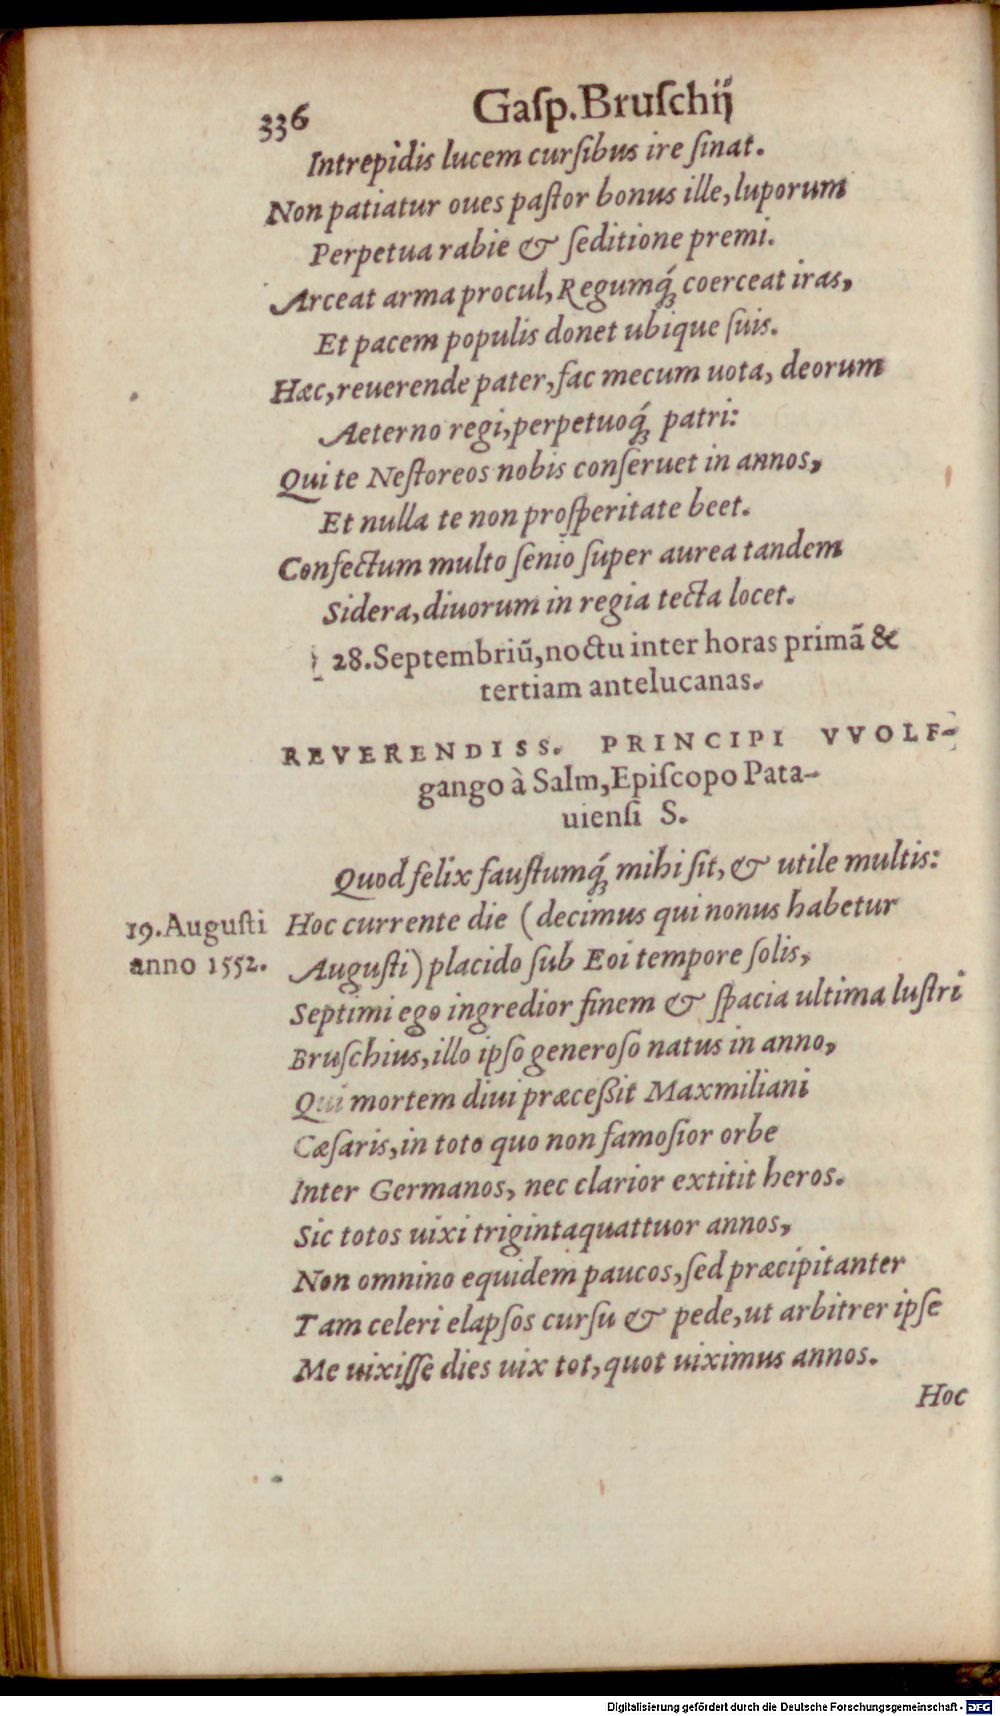 336 Gaſp. Bruſchij
Intrepidis lucem curſibus ire ſinat.
Non patiatur oues paſtor bonus ille, luporum
Perpetua rabie & ſeditione premi.
Arceat arma procul, Regumq́; coerceat iras,
Et pacem populis donet ubique ſuis.
Hæc, reuerende pater, fac mecum uota, deorum
Aeterno regi, perpetuoq́; patri:
Qui te Neſtoreos nobis conſeruet in annos,
Et nulla te non proſperitate beet.
Confectum multo ſenio ſuper aurea tandem
Sidera, diuorum in regia tecta locet.
28. Septembriũ, noctu inter horas primã &
tertiam antelucanas.
REVERENDISS. PRINCIPI VVOLF-
gango à Salm, Epiſcopo Pata-
uienſi S.
Quod felix fauſtumq́; mihi ſit, & utile multis:
19. Auguſti
anno 1552.
Hoc currente die (decimus qui nonus habetur
Auguſti) placido ſub Eoi tempore ſolis,
Septimi ego ingredior finem & ſpacia ultima luſtri
Bruſchius, illo ipſo generoſo natus in anno,
Qui mortem diui præceßit Maxmiliani
Cæſaris, in toto quo non famoſior orbe
Inter Germanos, nec clarior extitit heros.
Sic totos uixi trigintaquattuor annos,
Non omnino equidem paucos, ſed præcipitanter
Tam celeri elapſos curſu & pede, ut arbitrer ipſe
Me uixiſſe dies uix tot, quot uiximus annos.
Hoc
Digitalisierung gefördert durch die Deutsche Forschungsgemeinschaft - DFG